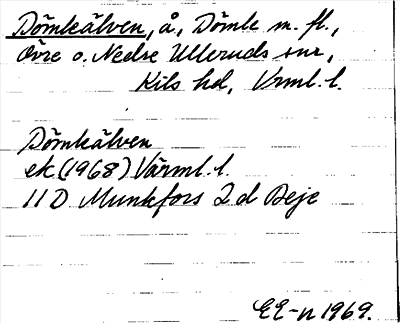 Dömleälven, å, Dömle m. fl.,
Övre o. Nedre Ulleruds snr,
Kils hd, Vrml. l.
Dömleälven
ek. (1968) Värml. l.
11 D Munkfors 2 d Deje
EE-n 1969.